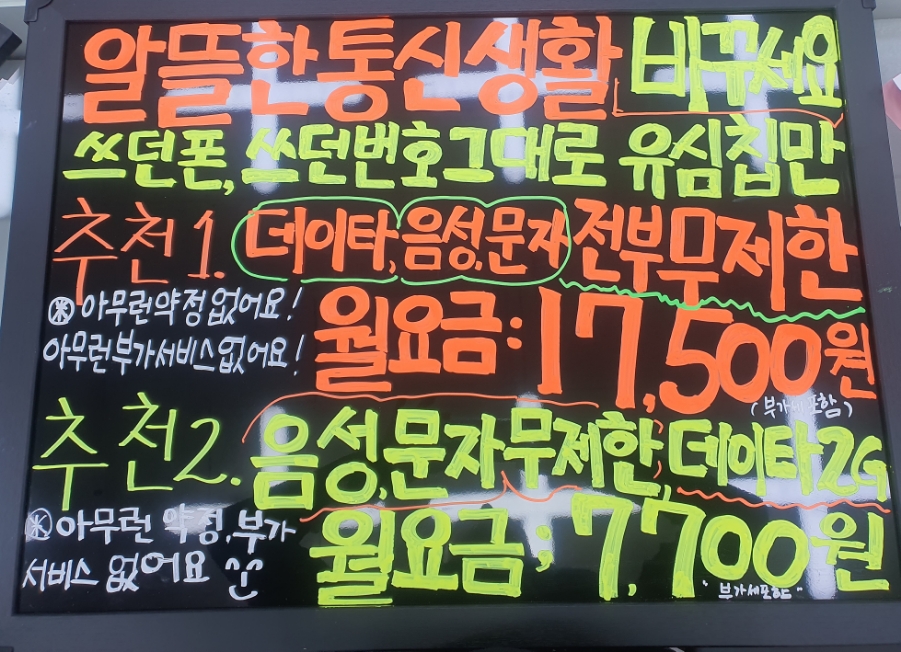 알뜰한통신생활 바꾸세요
쓰던폰, 쓰던번호그대로 유심칩만
추천1. 데이타, 음성, 문자 전부무제한
㊍ 아무런약정없어요!
아무런부가서비스없어요!
월요금: 17,500원
(부가세포함)
추천2. 음성, 문자무제한, 데이타2G
㊍ 아무런 약정, 부가
서비스 없어요
월요금: 7,700원
"부가세포함"